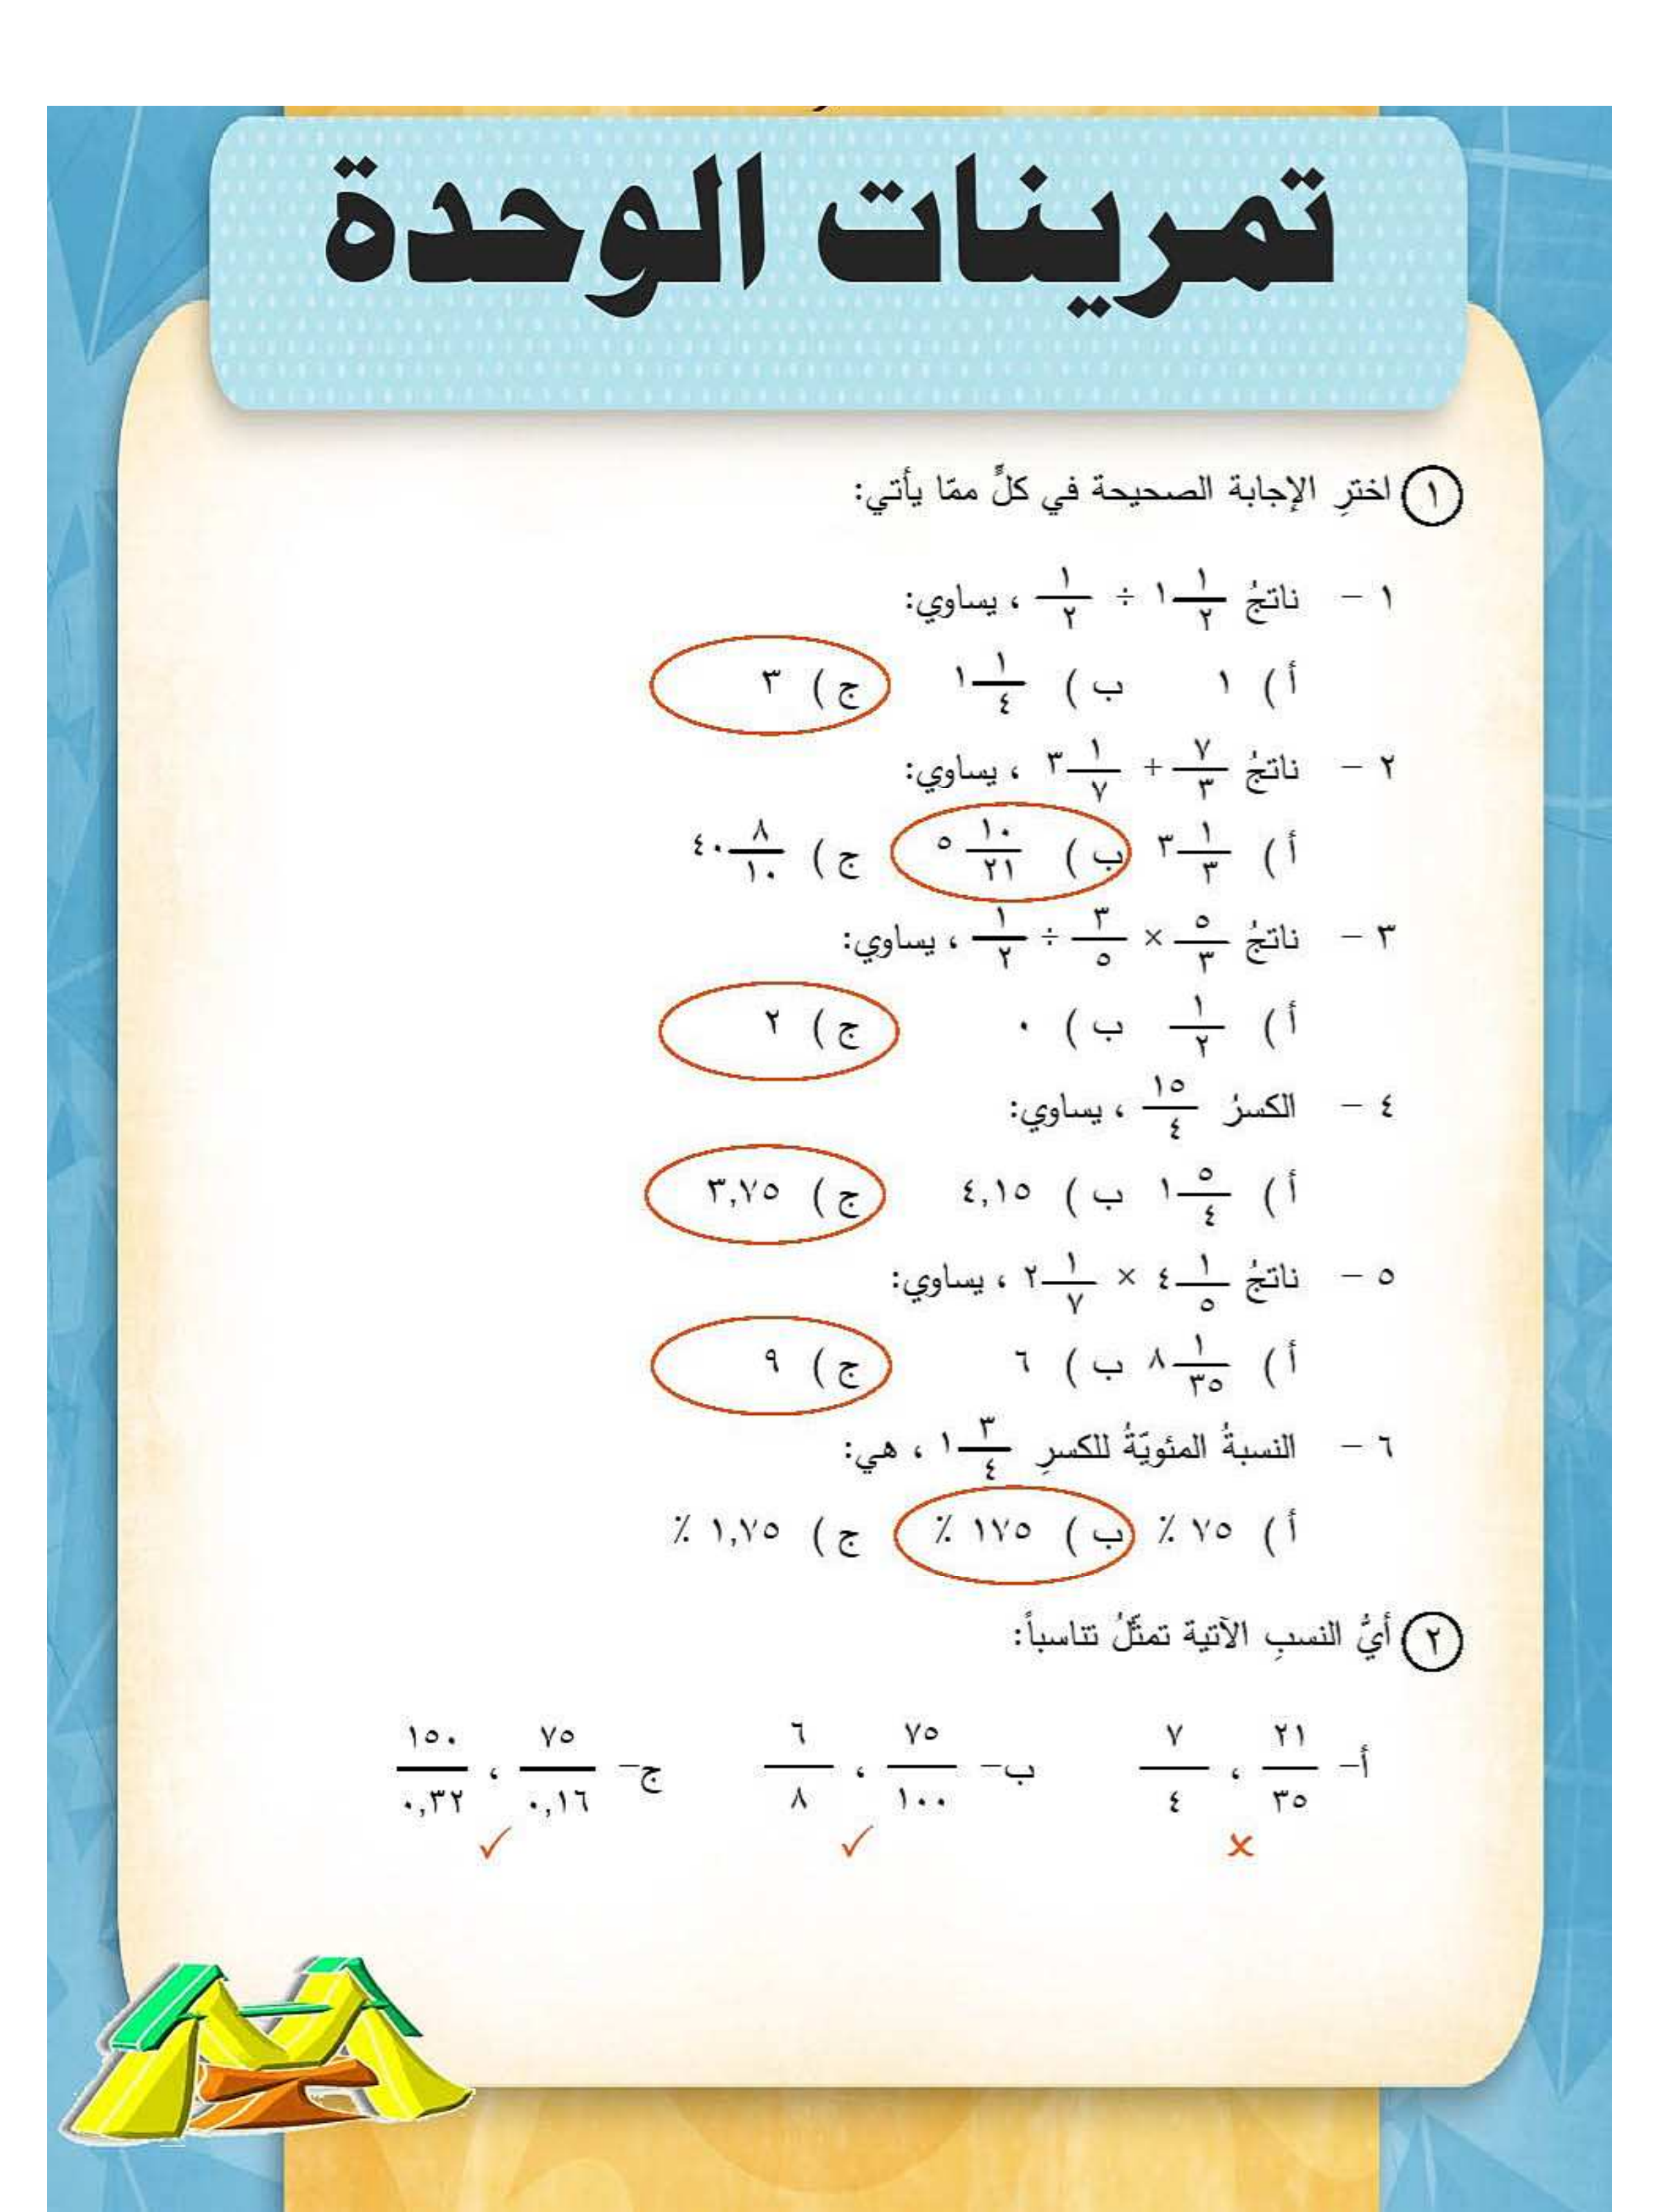 تمرينات الوحدة
١ اخترِ الإجابة الصحيحة في كلٍّ ممّا يأتي:
١ – ناتجُ ١ ١/٢ ÷ ١/٢ ، يساوي:
أ ) ١ ب ) ١ ١/٤ ج ) ٣
٢ – ناتجُ ٧/٣ + ٣ ١/٧ ، يساوي:
أ ) ٣ ١/٣ ب ) ٥ ١٠/٢١ ج ) ٤٠ ٨/١٠
٣ – ناتجُ ٥/٣ × ٣/٥ ÷ ١/٢ ، يساوي:
أ ) ١/٢ ب ) ٠ ج ) ٢
٤ – الكسرُ ١٥/٤ ، يساوي:
أ ) ١ ٥/٤ ب ) ٤,١٥ ج ) ٣,٧٥
٥ – ناتجُ ٤ ١/٥ × ٢ ١/٧ ، يساوي:
أ ) ٨ ١/٣٥ ب ) ٦ ج ) ٩
٦ – النسبةُ المئويّةُ للكسرِ ١ ٣/٤ ، هي:
أ ) ٧٥ ٪ ب ) ١٧٥ ٪ ج ) ١,٧٥ ٪
٢ أيُّ النسبِ الآتية تمثّلُ تناسباً:
أ– ٢١/٣٥ ، ٧/٤ ب– ٧٥/١٠٠ ، ٦/٨ ج– ٧٥/٠,١٦ ، ١٥٠/٠,٣٢
✗ ✓ ✓